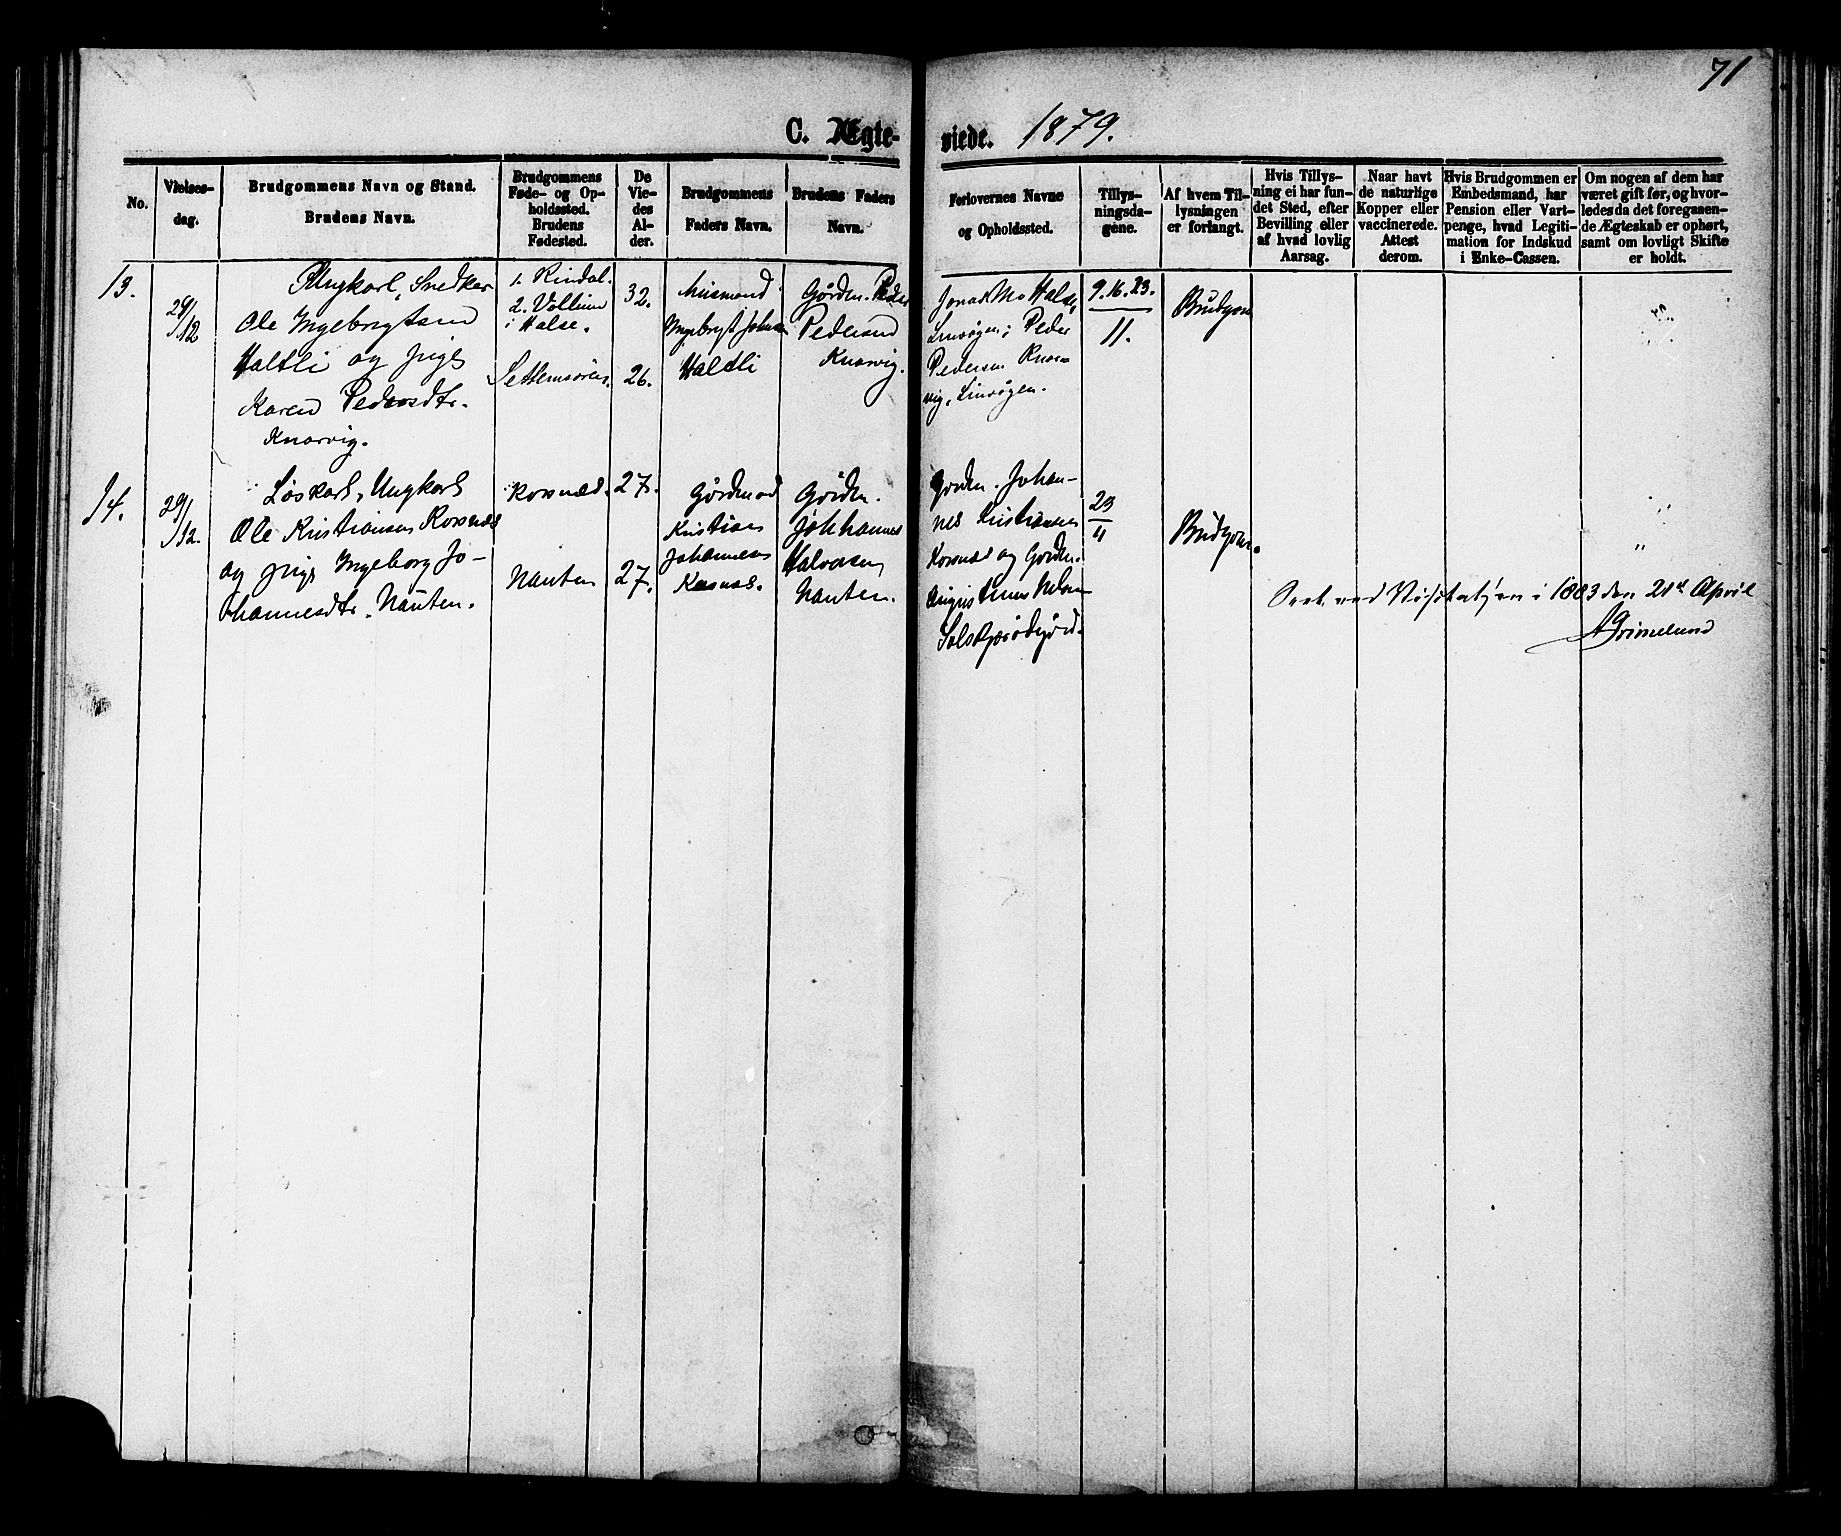 71
C. Ægte-
viede. 1879.
No.
Vielses-
dag.
Brudgommens Navn og Stand.
Brudens Navn.
Brudgommens
Føde- og Op-
holdssted.
Brudens
Fødested.
De
Vie-
des
Al-
der.
Brudgommens
Faders Navn.
Brudens Faders
Navn.
Forlovernes Navne
og Opholdssted.
Tillys-
ningsda-
gene.
Af hvem Til-
lysningen
er forlangt.
Hvis Tillys-
ning ei har fun-
det Sted, efter
Bevilling eller
af hvad lovlig
Aarsag.
Naar havt
de naturlige
Kopper eller
vaccinerede.
Attest
derom.
Hvis Brudgommen er
Embedsmand, har
Pension eller Vart-
penge, hvad Legiti-
mation for Indskud
i Enke-Cassen.
Om nogen af dem har
været gift før, og hvor-
ledes da det foregaaen-
de Ægteskab er ophørt,
samt om lovligt Skifte
er holdt.
13.
29/12
Ungkarl, Snedker
Ole Ingebrigtsen
Haltli og pige
Karen Pedersdtr.
Knarvig.
1. Rindal.
2. Vollum
i Halse.
Settemsøren.
32.
26.
Husmand
Ingebrygt Johnsen
Haltli
Gårdm. Peder
Pedersen
Knarvig.
Jonas Mo Halse,
Peder
Pedersen Knar-
vig,
9. 16. 23.
11.
Brudgom
14.
29/12.
Løskarl, Ungkarl
Ole Kristiansen Korsnæs
og pige Ingeborg Jo-
hannesdtr. Nauten.
Korsnæs.
Nauten
27.
27.
Gårdmand
Kristian
Johannesen
Korsnæs.
Gårdm.
Johannes
Halvorsen
Nauten.
Gårdm. Johan-
nes Kristiansen
Korsnæs og Gårdm.

23
11
Brudgom.
"
Seet ved Visitatsen i 1883 den 21de April
AGrimelund